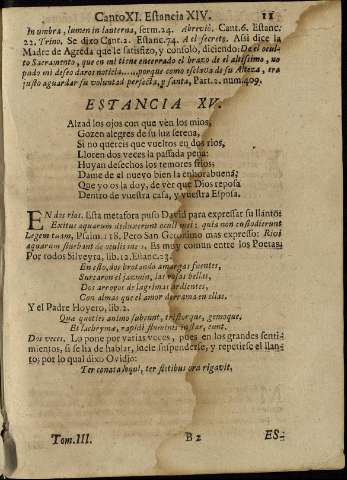 Canto XI. Estancia XIV. 11
In umbra, lumen in lanterna, serm.24. Abrevió. Cant.6. Estanc.
22. Trino. Se dixo Cant.2. Estanc.74. A el secreto. Assi dice la
Madre de Agreda que le satisfizo, y consolo, diciendo: De el ocul-
to Sacramento, que en mi tiene encerrado el brazo de el altissimo, no
pudo mi deseo daros noticia......porque como esclava de su Alteza, era
justo aguardar su voluntad perfecta, y santa, Part.2. num.409.
ESTANCIA XV.
Alzad los ojos con que vèn los mios,
Gozen alegres de su luz serena,
Si no quereis que vueltos en dos rios,
Lloren dos veces la passada pena:
Huyan deshechos los temores frios;
Dame de el nuevo bien la enhorabuena;
Que yo os la doy, de vèr que Dios reposa
Dentro de vuestra casa, y vuestra Esposa.
EN dos rios. Esta metafora puso David para expressar su llanto:
Exitus aquarum deduxerunt oculi mei: quia non custodierunt
Legem tuam, Psalm.118. Pero San Geronimo mas expresso: Rivi
aquarum fluebant de oculis meis. Es muy comun entre los Poetas.
Por todos Silveyra, lib.12. Estanc.23.
En esso, dos brotando amargas fuentes,
Surcaron el jazmin, las rosas bellas,
Dos arroyos de lagrimas ardientes,
Con almas que el amor derrama en ellas.
Y el Padre Hoyero, lib.2.
Quæ quoties animo subeunt, tristorque, gemoque,
Et lachrymæ, rapidi fluminis instar, eunt.
Dos veces. Lo pone por varias veces, pues en los grandes senti-
mientos, si se ha de hablar, suele suspenderse, y repetirse el llan-
to; por lo qual dixo Ovidio:
Ter conata loqui, ter fletibus ora rigavit,
Tom.III. B2 ES-